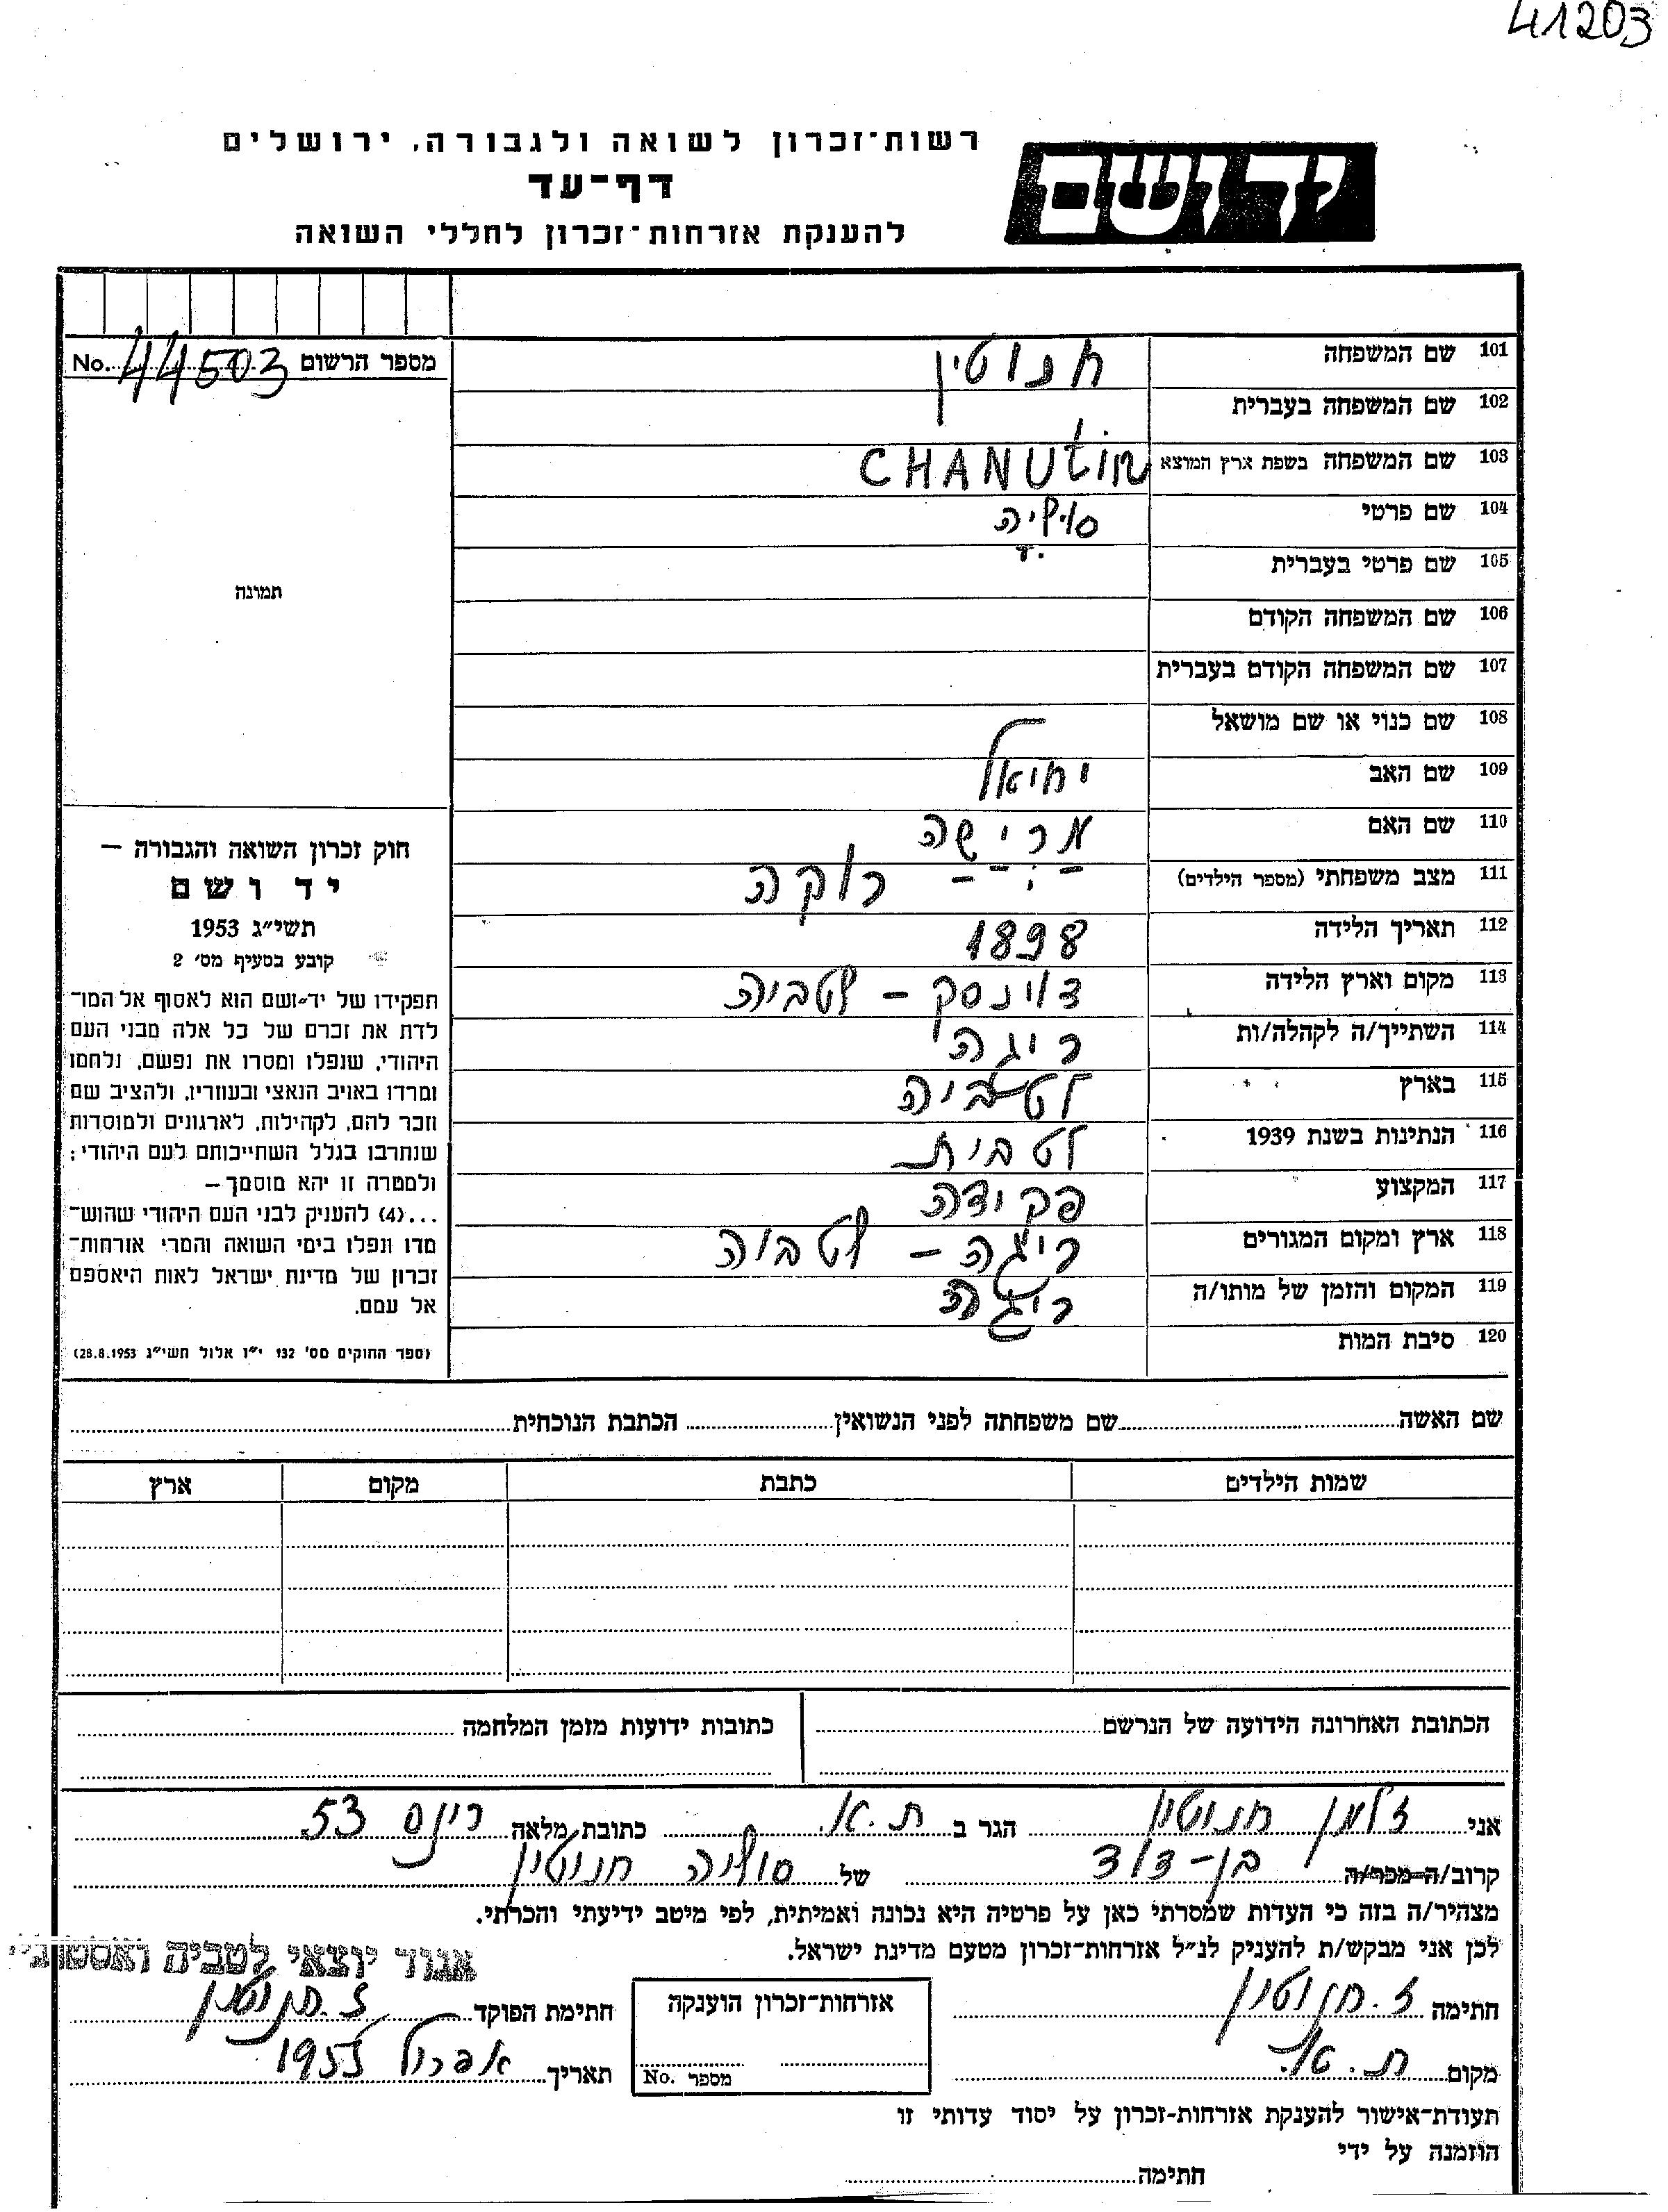 41203
יד ושם
רשות־זכרון לשואה ולגבורה, ירושלים
דף־עד
להענקת אזרחות־זכרון לחללי השואה
101 שם המשפחה חנוטין
102 שם המשפחה בעברית
103 שם המשפחה בשפת ארץ המוצא CHANUtin
104 שם פרטי סופיה
105 שם פרטי בעברית
106 שם המשפחה הקודם
107 שם המשפחה הקודם בעברית
108 שם כנוי או שם מושאל
109 שם האב יחיאל
110 שם האם
111 מצב משפחתי (מספר הילדים) רוקה
112 תאריך הלידה 1898
113 מקום וארץ הלידה דוינסק – לטביה
114 השתייך/ה לקהלה/ות ריגה
115 בארץ לטביה
116 הנתינות בשנת 1939 לטבית
117 המקצוע פקידה
118 ארץ ומקום המגורים ריגה – לטביה
119 המקום והזמן של מותו/ה ריגה
120 סיבת המות
מספר הרשום No. 44503
תמונה
חוק זכרון השואה והגבורה –
יד ושם
תשי״ג 1953
קובע בסעיף מס׳ 2
תפקידו של יד־ושם הוא לאסוף אל המו־
לדת את זכרם של כל אלה מבני העם
היהודי, שנפלו ומסרו את נפשם, נלחמו
ומרדו באויב הנאצי ובעוזריו, ולהציב שם
וזכר להם, לקהילות, לארגונים ולמוסדות
שנחרבו בגלל השתייכותם לעם היהודי;
ולמטרה זו יהא מוסמך –
...(4) להעניק לבני העם היהודי שהוש־
מדו ונפלו בימי השואה והמרי אזרחות־
זכרון של מדינת ישראל לאות היאספם
אל עמם.
(ספר החוקים מס׳ 132 י״ז אלול תשי״ג 28.8.1953)
שם האשה שם משפחתה לפני הנשואין הכתבת הנוכחית
שמות הילדים כתבת מקום ארץ
הכתובת האחרונה הידועה של הנרשם כתובות ידועות מזמן המלחמה
אני זלמן חנוטין הגר ב ת.א. כתובת מלאה ריינס 53
קרוב/ה מכר/ה בן-דוד של סופיה חנוטין
מצהיר/ה בזה כי העדות שמסרתי כאן על פרטיה היא נכונה ואמיתית, לפי מיטב ידיעתי והכרתי.
לכן אני מבקש/ת להעניק לנ״ל אזרחות־זכרון מטעם מדינת ישראל.
אגוד יוצאי לטביה ואסטוניה
חתימה ז. חנוטין אזרחות־זכרון הוענקה חתימת הפוקד ז. חנוטין
מקום ת.א. מספר No. תאריך אפריל 1955
תעודת־אישור להענקת אזרחות-זכרון על יסוד עדותי זו
הוזמנה על ידי
חתימה